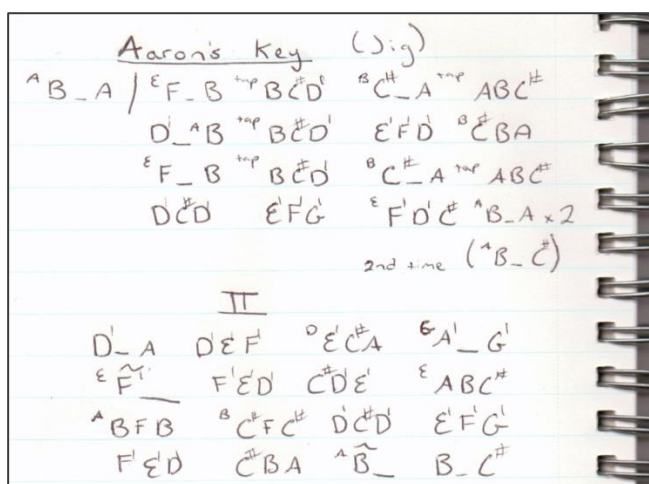 Aaron's Key (Jig)
ᴬB_A / ᴱF_B ᵗᵃᵖ BC#D' ᴮC#_A ᵗᵃᵖ ABC#
D'_ᴬB ᵗᵃᵖ BC#D' E'F'D' ᴮC#BA
ᴱF_B ᵗᵃᵖ BC#D' ᴮC#_A ᵗᵃᵖ ABC#
D'C#D' E'F'G' ᴱF'D'C# ᴬB_A x 2
2nd time (ᴬB_C#)
II
D'_A D'E'F' ᴰE'C#A ᴳA'_G'
ᴱF̃'_ F'E'D' C#D'E' ᴱABC#
ᴬBFB ᴮC#FC# D'C#D' E'F'G'
F'E'D' C#BA ᴬB̃_ B_C#